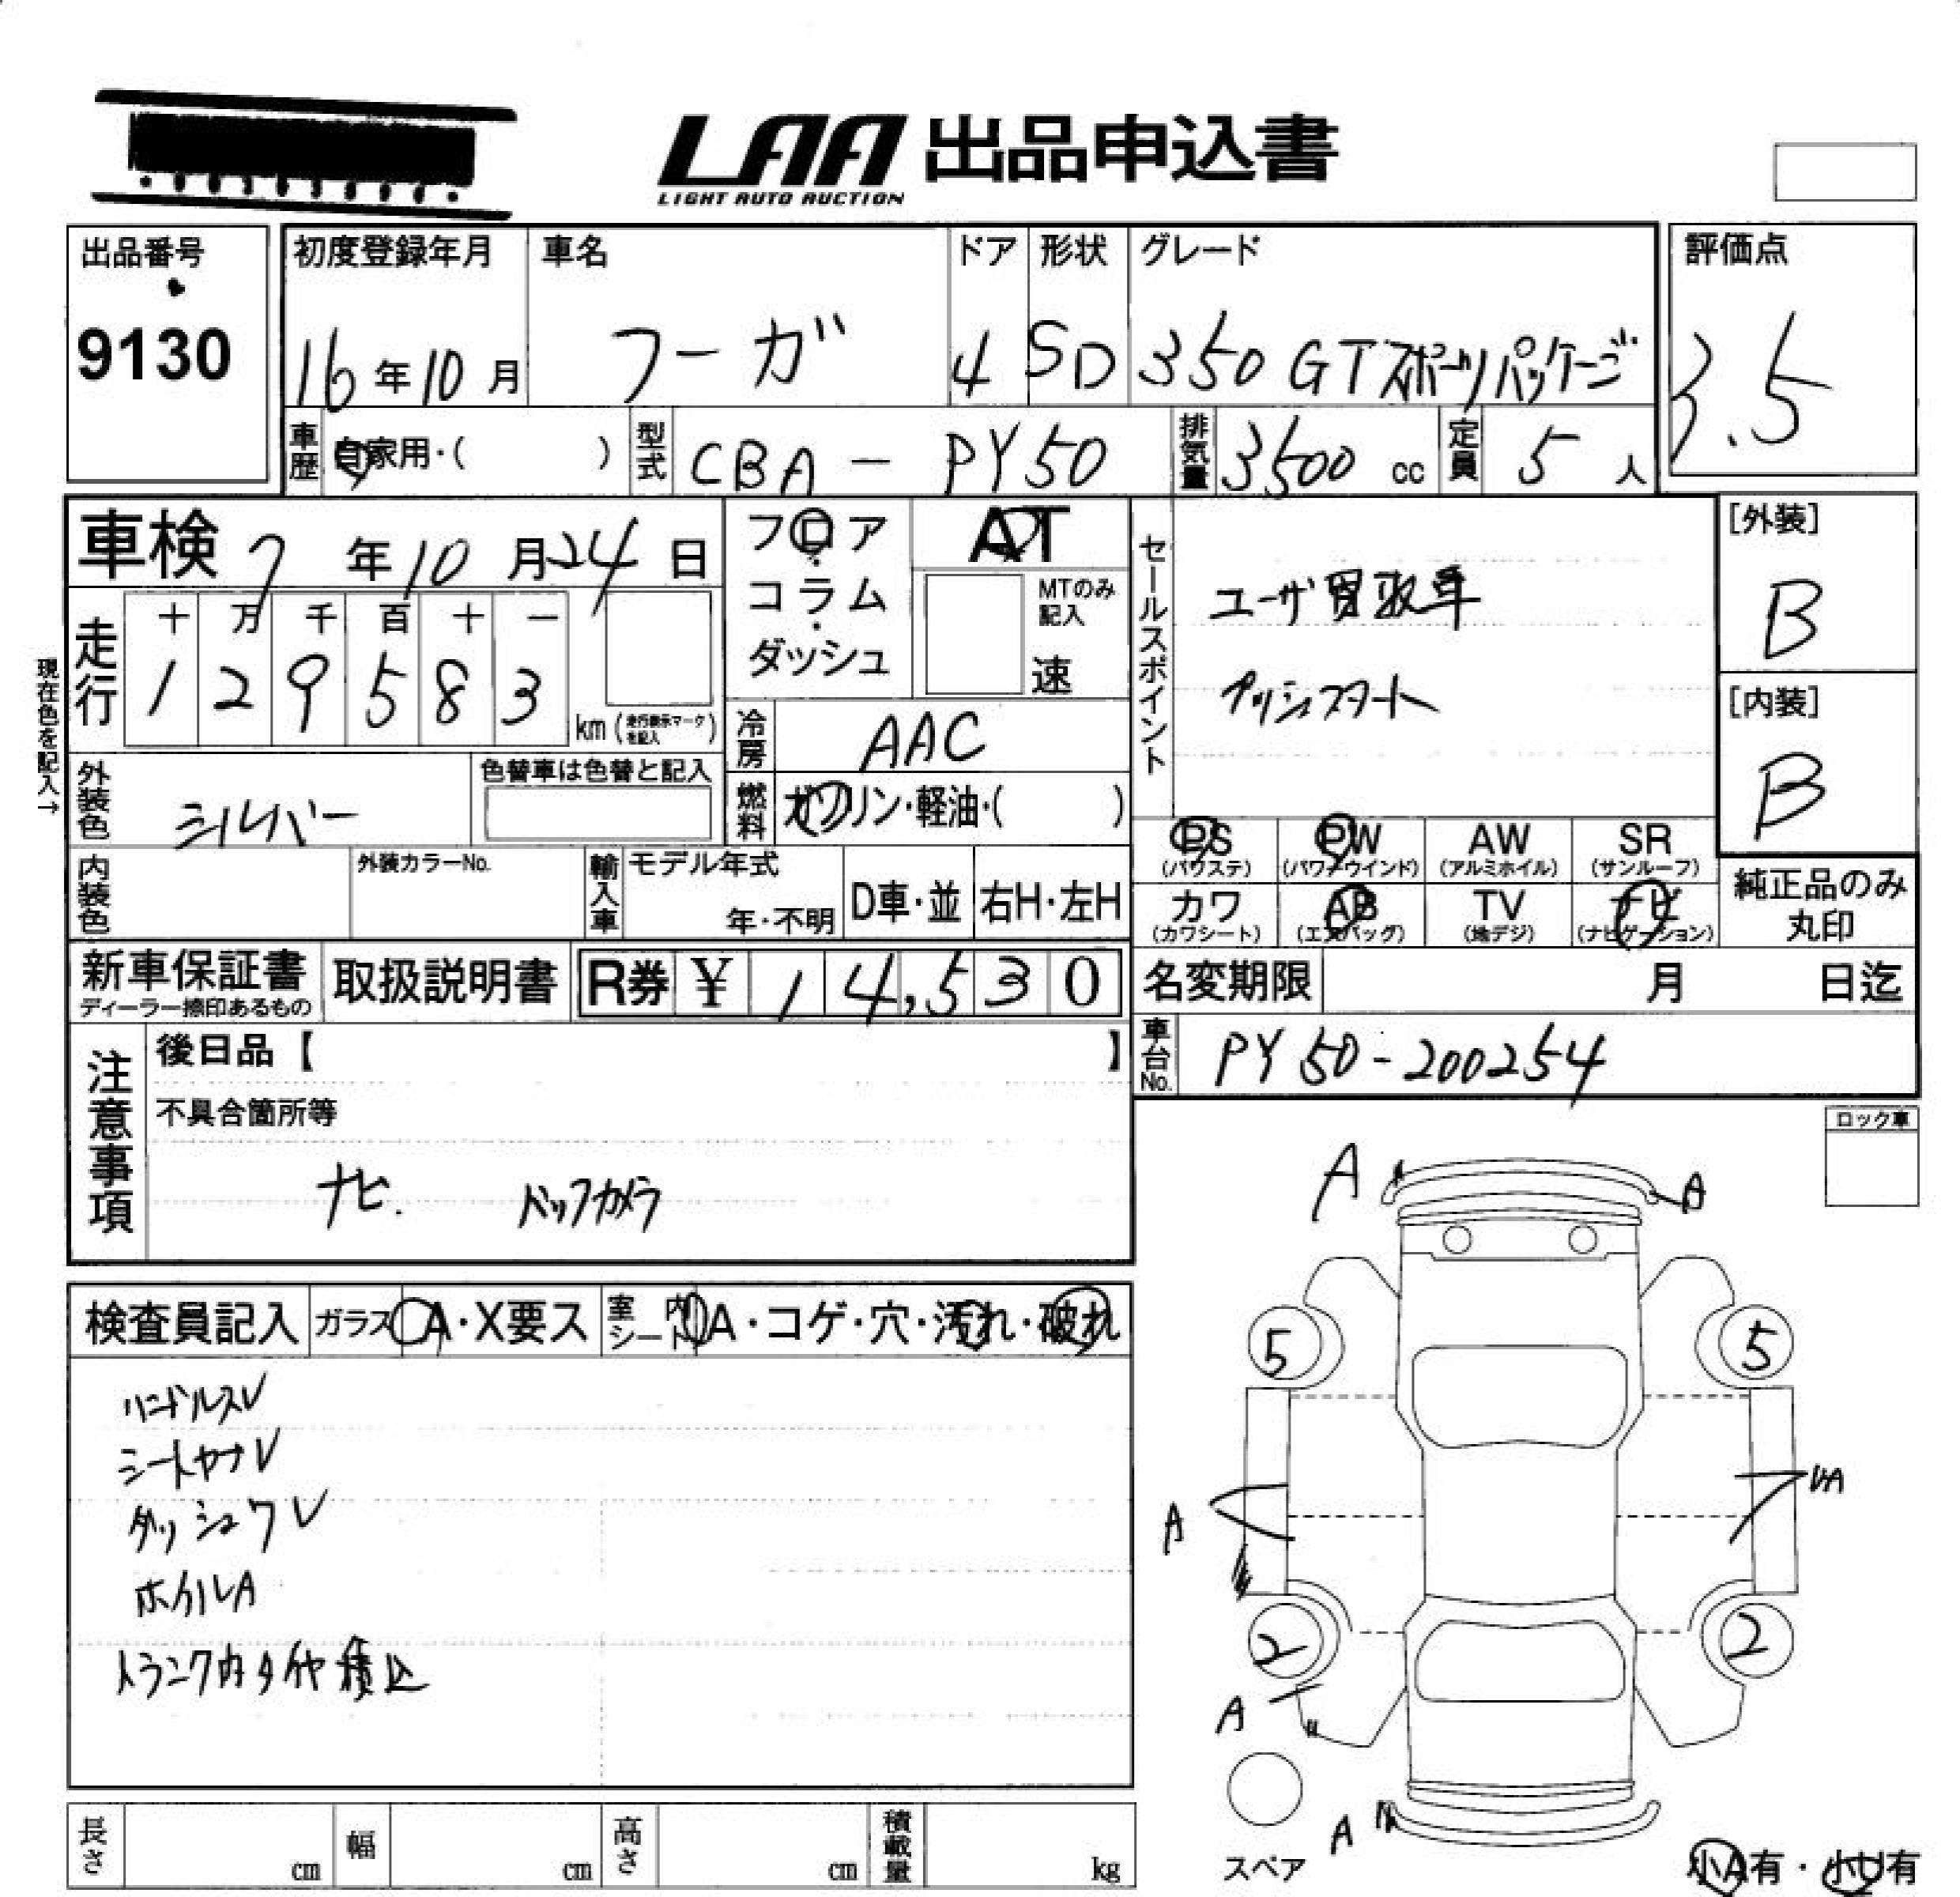 LAA 出品申込書
LIGHT AUTO AUCTION
出品番号
9130
初度登録年月
16年10月
車名
フーガ
ドア
4
形状
SD
グレード
350 GT スポーツパッケージ
評価点
3.5
車歴 自家用・( )
型式 CBA - PY50
排気量 3500 cc
定員 5 人
車検 7年10月24日
フロア・コラム・ダッシュ
AT
MTのみ記入
速
セールスポイント
ユーザ買取車
プッシュスタート
[外装]
B
[内装]
B
現在色を記入→
走行
十 万 千 百 十 一
1 2 9 5 8 3
km (走行表示マークを記入)
冷房 AAC
外装色 シルバー
色替車は色替と記入
燃料 ガソリン・軽油・( )
PS (パワステ)
PW (パワーウインド)
AW (アルミホイル)
SR (サンルーフ)
カワ (カワシート)
AB (エアバッグ)
TV (地デジ)
ナビ (ナビゲーション)
純正品のみ丸印
内装色
外装カラーNo.
輸入車
モデル年式
年・不明
D車・並
右H・左H
新車保証書
ディーラー捺印あるもの
取扱説明書
R券 ¥ 14,530
名変期限 月 日迄
注意事項
後日品【 】
不具合箇所等
ナビ. バックカメラ
車台No. PY50-200254
ロック車
検査員記入
ガラス A・X要ス
室内シート A・コゲ・穴・汚れ・破れ
ハンドルスレ
シートヤブレ
ダッシュワレ
ホイルA
トランク内タイヤ積込
A
A
5
5
A
UA
2
2
A
A
スペア
小A有・小U有
長さ cm
幅 cm
高さ cm
積載量 kg